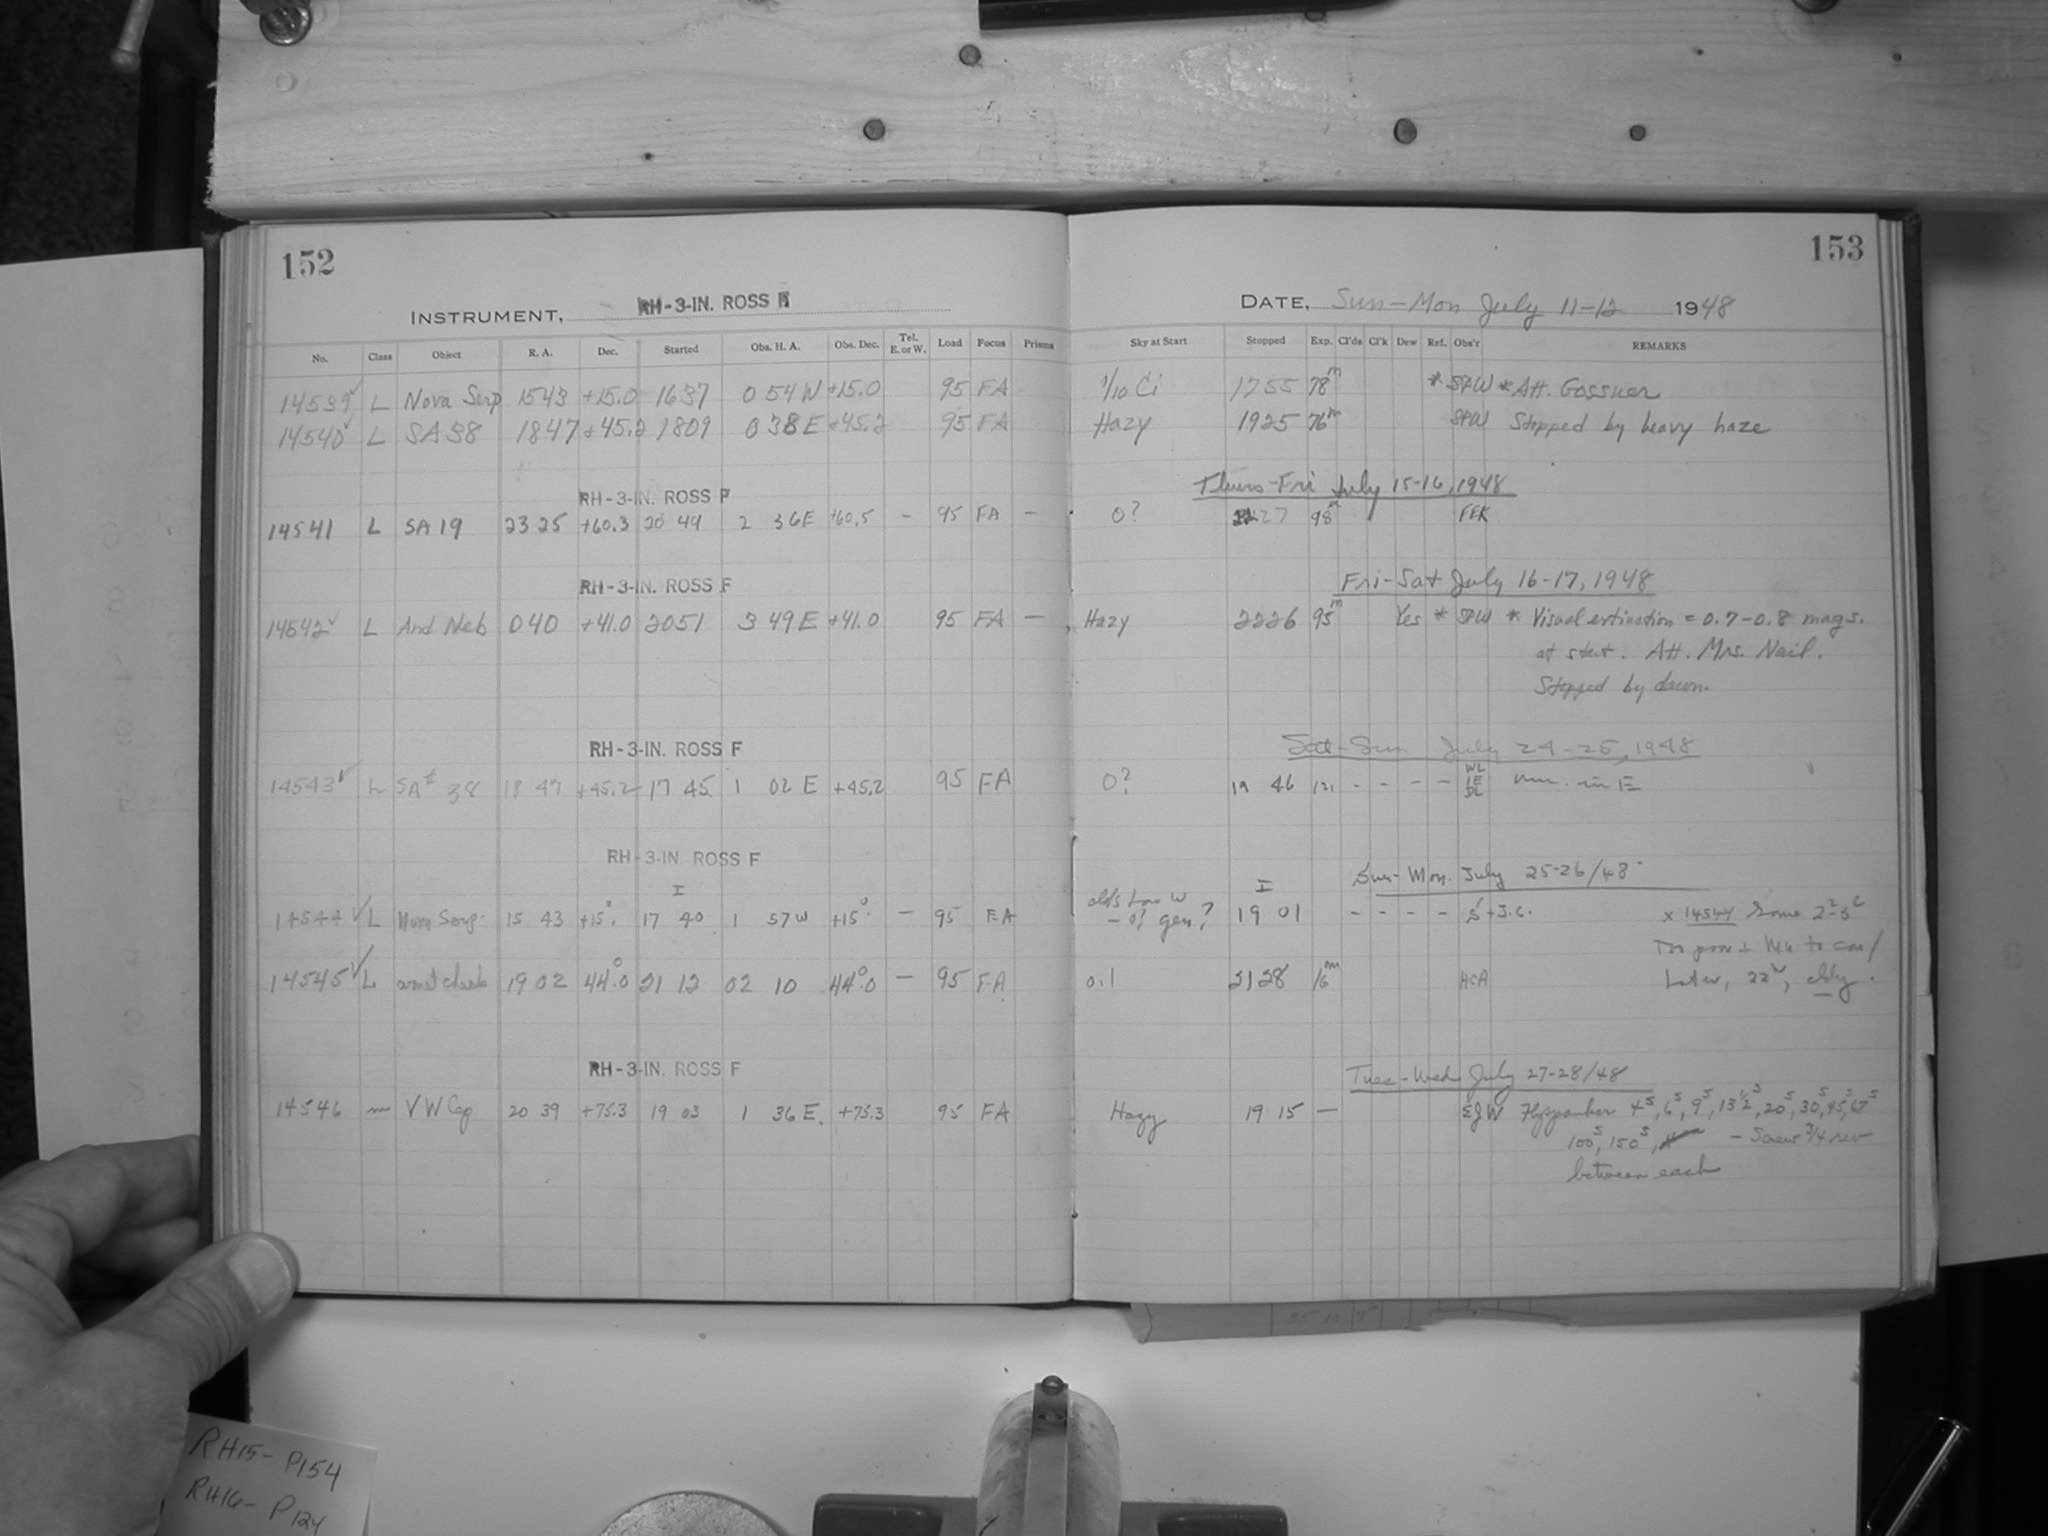 152
INSTRUMENT, RH-3-IN. ROSS F
No. Class Object R. A. Dec. Started Obs. H. A. Obs. Dec. Tel. E. or W. Load Focus Prisms
14539 L Nova Serp 1543 +15.0 1637 0 54 W +15.0 95 FA
14540 L SA 38 1847 +45.2 1809 0 38 E +45.2 95 FA
RH-3-IN. ROSS F
14541 L SA 19 23 25 +60.3 20 49 2 36E +60.5 - 95 FA -
RH-3-IN. ROSS F
14542 L And Neb 0 40 +41.0 2051 3 49 E +41.0 95 FA -
RH-3-IN. ROSS F
14543 L SA# 38 18 47 +45.2 17 45 1 02 E +45.2 95 FA
RH-3-IN. ROSS F
I
14544 L Nova Serp. 15 43 +15° 17 40 1 57 W +15° - 95 FA
14545 L 19 02 44.0 21 12 02 10 44.0 - 95 FA
RH-3-IN. ROSS F
14546 m VW Cep 20 39 +75.3 19 03 1 36 E. +75.3 95 FA
153
DATE, Sun-Mon July 11-12 1948
Sky at Start Stopped Exp. Cl'ds Cl'k Dew Ref. Obs'r REMARKS
1/10 Ci 1755 78m * SFW * Att. Gossner
Hazy 1925 76m SFW Stopped by heavy haze
Thurs-Fri July 15-16, 1948
0? 2227 98m FEK
Fri-Sat July 16-17, 1948
Hazy 2226 95m Yes * SFW * Visual extinction = 0.7-0.8 mags.
at start. Att. Mrs. Nail.
Stopped by dawn.
Sat-Sun July 24-25, 1948
0? 19 46 121 - - - - WL IE DL in E
Sun-Mon. July 25-26/48
clds low W I
- 0? gen? 19 01 - - - - S+J.C. x 14544 Some
0.1 2128 16m HCA Later, cldy.
Tues-Wed July 27-28/48
Hazy 19 15 - EJW 4s, 6s, 9s, 13½s, 20s, 30s, 45s, 67s
100s, 150s, - Screw 3/4 rev
between each
RH15- P154
RH16- P124